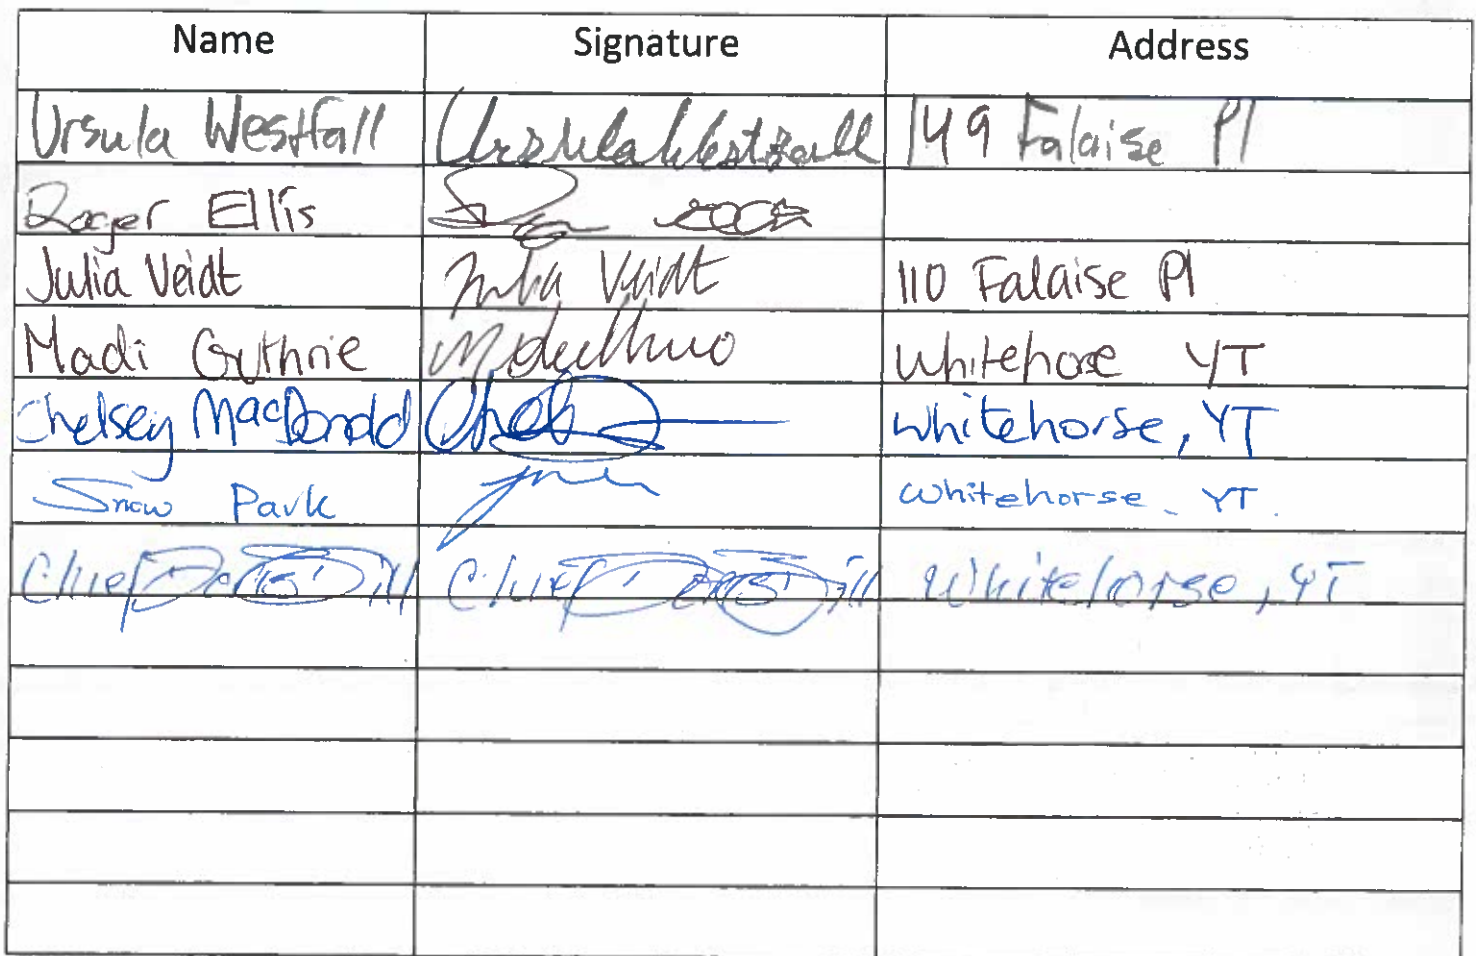 Name Signature Address
Ursula Westfall Ursula Westfall 149 Falaise Pl
Roger Ellis
Julia Veidt Julia Veidt 110 Falaise Pl
Madi Guthrie Whitehose YT
Chelsey MacDonald Whitehorse, YT
Snow Park Whitehorse. YT.
Chief Doris Bill Chief Doris Bill Whitehorse, YT